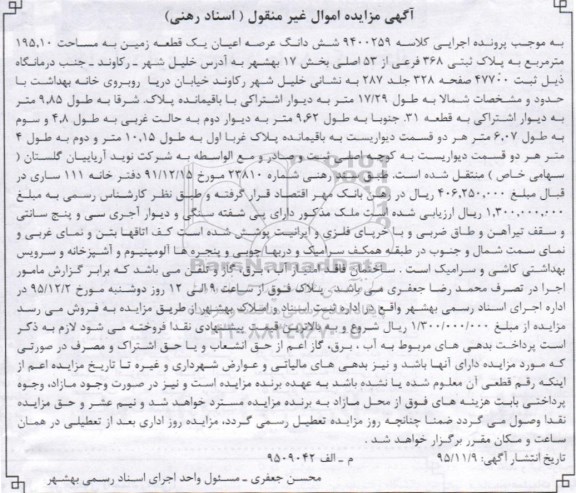 آگهی مزایده اموال غیر منقول ( اسناد رهنی)
به موجب پرونده اجرایی کلاسه ۹۴۰۰۲۵۹ شش دانگ عرصه اعیان یک قطعه زمین به مساحت ۱۹۵,۱۰
مترمربع به پلاک ثبتی ۳۶۸ فرعی از ۵۳ اصلی بخش ۱۷ بهشهر به آدرس خلیل شهر ـ رکاوند ـ جنب درمانگاه
ذیل ثبت ۴۷۷۰۰ صفحه ۳۲۸ جلد ۲۸۷ به نشانی خلیل شهر رکاوند خیابان دریا روبروی خانه بهداشت با
حدود و مشخصات شمالا به طول ۱۷/۲۹ متر به دیوار اشتراکی با باقیمانده پلاک. شرقا به طول ۹,۸۵ متر
به دیوار اشتراکی به قطعه ۳۱. جنوبا به طول ۹,۶۲ متر به دیوار دوم به حالت غربی به طول ۴,۸ و سوم
به طول ۶,۰۷ متر هر دو قسمت دیواریست به باقیمانده پلاک غربا اول به طول ۱۰,۱۵ متر و دوم به طول ۴
متر هر دو قسمت دیواریست به کوچه اصلی ثبت و صادر و مع الواسطه به شرکت نوید آریاییان گلستان (
سهامی خاص ) منتقل شده است. طبق سند رهنی شماره ۲۳۸۱۰ مورخ ۹۱/۱۲/۱۵ دفتر خانه ۱۱۱ ساری در
قبال مبلغ ۴۰۶,۲۵۰,۰۰۰ ریال در رهن بانک مهر اقتصاد قرار گرفته و طبق نظر کارشناس رسمی به مبلغ
۱,۳۰۰,۰۰۰,۰۰۰ ریال ارزیابی شده است ملک مذکور دارای پی شفته سنگی و دیوار آجری سی و پنج سانتی
و سقف تیرآهن و طاق ضربی و با خرپای فلزی و ایرانیت پوشش شده است کف اتاقها بتن و نمای غربی و
نمای سمت شمال و جنوب در طبقه همکف سرامیک و دربها چوبی و پنجره ها آلومینیوم و آشپزخانه و سرویس
بهداشتی کاشی و سرامیک است . ساختمان فاقد امتیاز آب، برق، گاز و تلفن می باشد که برابر گزارش مامور
اجرا در تصرف محمد رضا جعفری می باشد. پلاک فوق از ساعت ۹ الی ۱۲ روز دوشنبه مورخ ۹۵/۱۲/۲ در
اداره اجرای اسناد رسمی بهشهر واقع در اداره ثبت اسناد و املاک بهشهر از طریق مزایده به فروش می رسد
مزایده از مبلغ ۱/۳۰۰/۰۰۰/۰۰۰ ریال شروع و به بالاترین قیمت پیشنهادی نقدا فروخته می شود لازم به ذکر
است پرداخت بدهی های مربوط به آب ، برق، گاز اعم از حق انشعاب و یا حق اشتراک و مصرف در صورتی
که مورد مزایده دارای آنها باشد و نیز بدهی های مالیاتی و عوارض شهرداری و غیره تا تاریخ مزایده اعم از
اینکه رقم قطعی آن معلوم شده یا نشده باشد به عهده برنده مزایده است و نیز در صورت وجود مازاد، وجوه
پرداختی بابت هزینه های فوق از محل مازاد به برنده مزایده مسترد خواهد شد و نیم عشر و حق مزایده
نقدا وصول می گردد ضمنا چنانچه روز مزایده تعطیل رسمی گردد، مزایده روز اداری بعد از تعطیلی در همان
ساعت و مکان مقرر برگزار خواهد شد .
تاریخ انتشار آگهی: ۹۵/۱۱/۹ م ـ الف ۹۵۰۹۰۴۲
محسن جعفری ـ مسئول واحد اجرای اسناد رسمی بهشهر